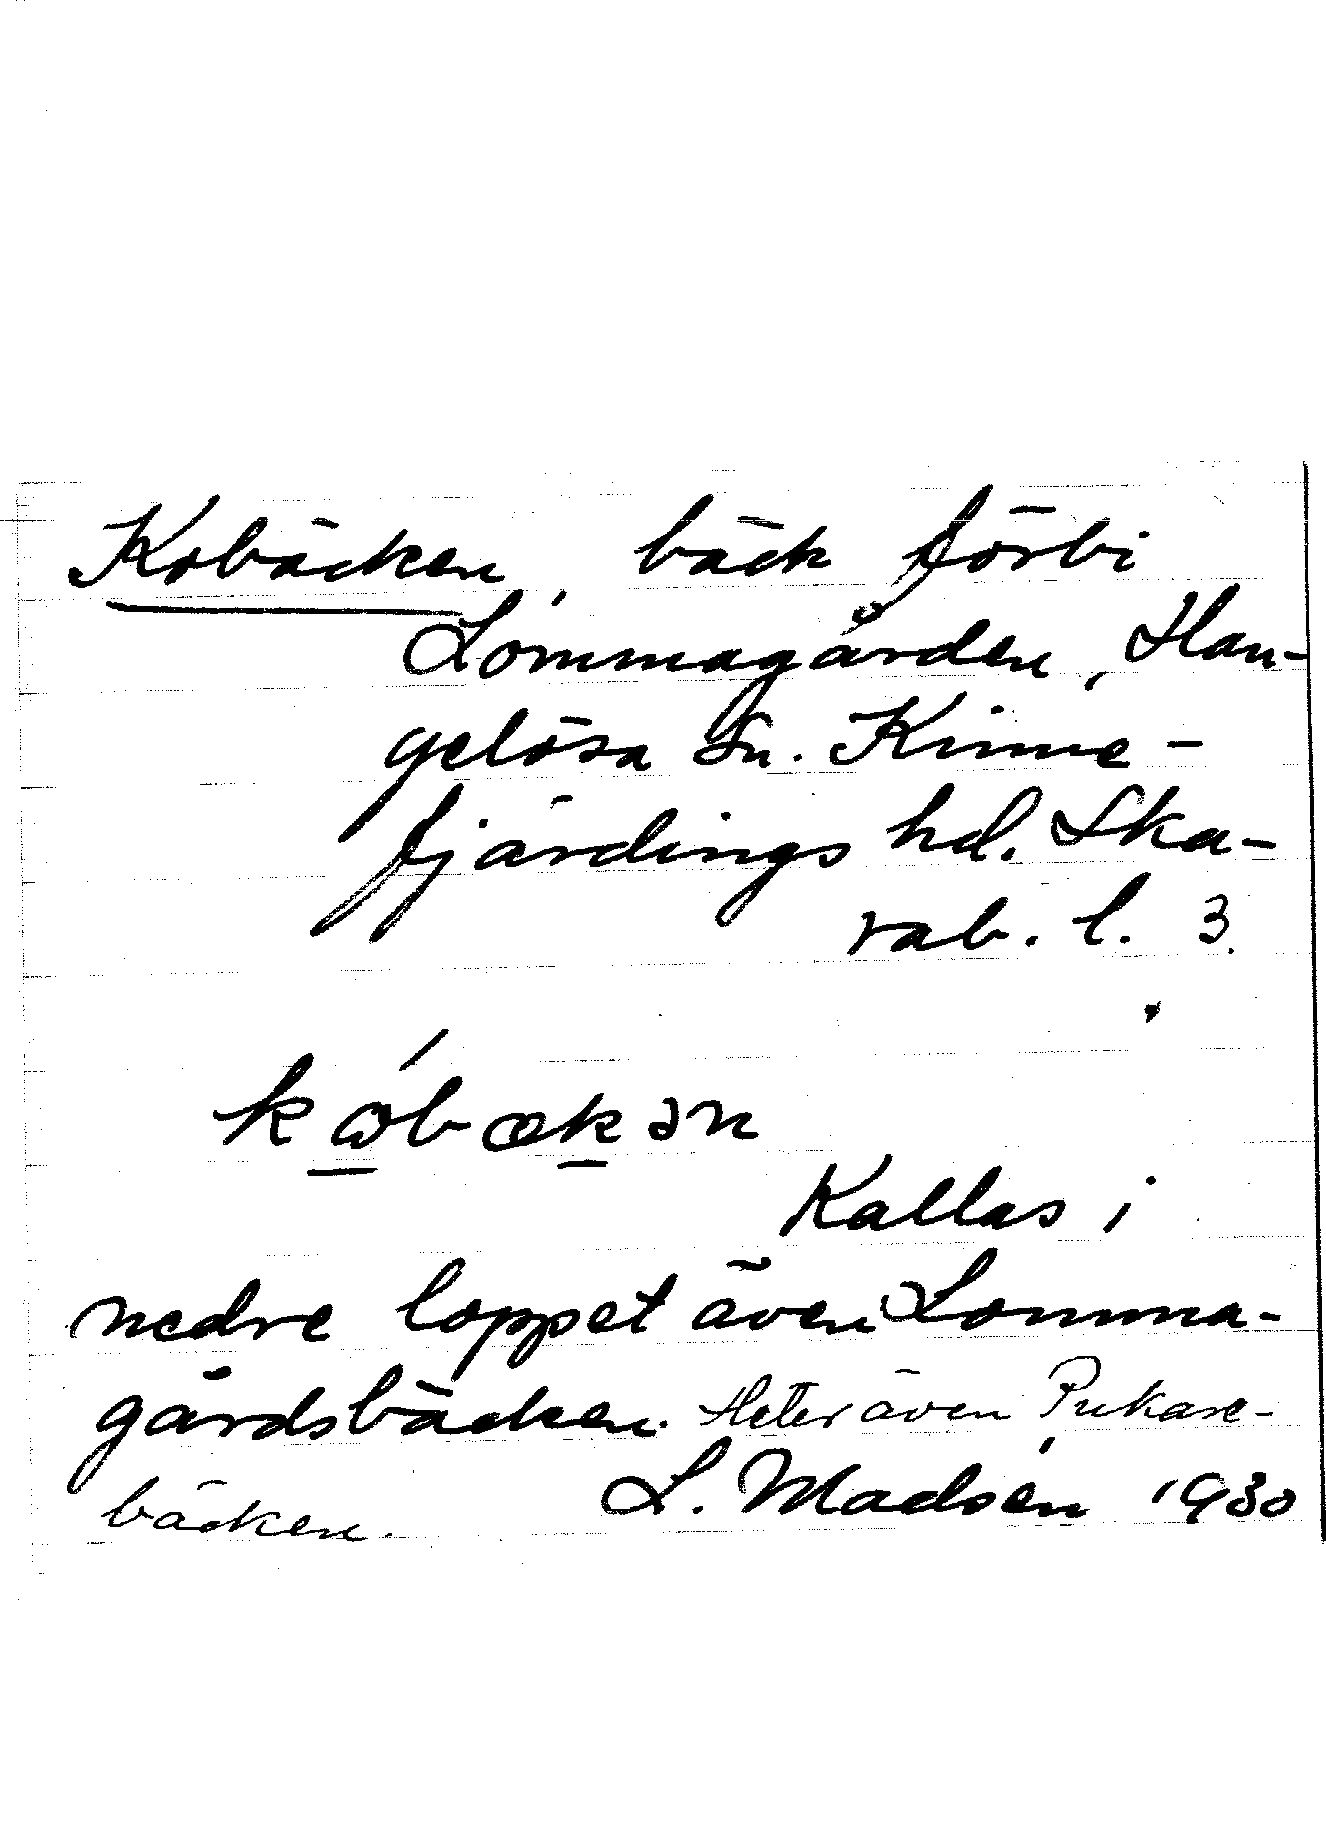 Kobäcken, bäck förbi
Lommagården, Han-
gelösa Sn. Kinne-
fjärdings hd. Ska-
rab. l. 3.
Kallas i
nedre loppet även Lomma-
gårdsbäcken. Heter även Pukare-
bäcken. L. Madsén 1930